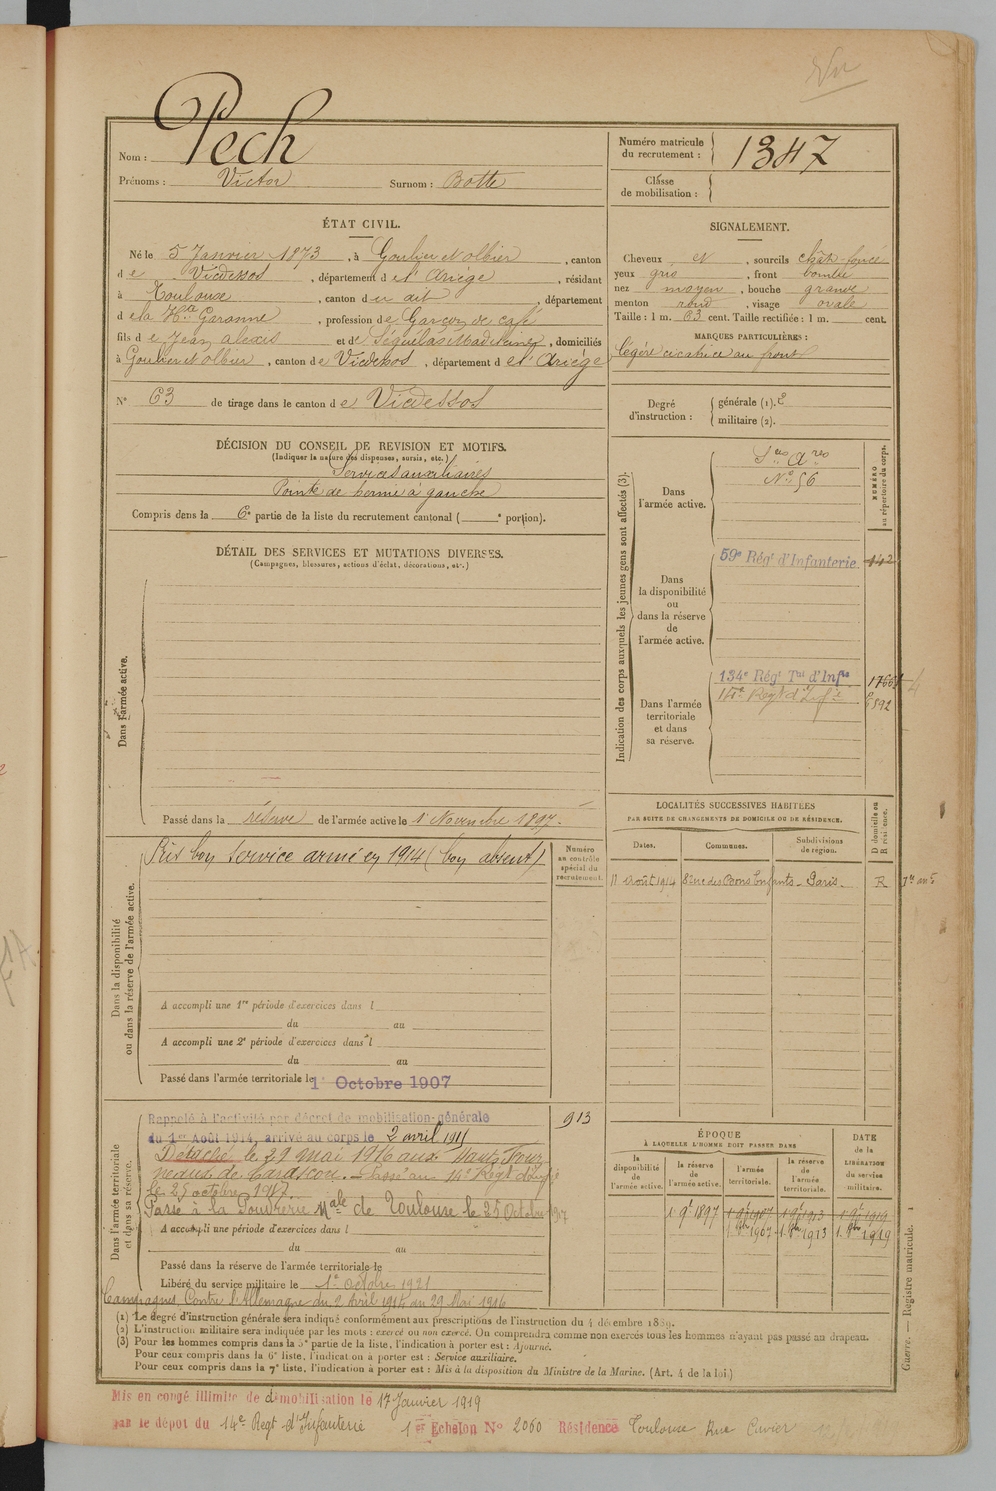 Vu
Nom : Pech
Prénoms : Victor Surnom : Botte
Numéro matricule du recrutement : 1347
Classe de mobilisation :
ÉTAT CIVIL.
Né le 5 Janvier 1873, à Goulier et olbier, canton
de Vicdessos, département de l'Ariège, résidant
à Toulouse, canton du dit, département
de la Hte Garonne, profession de Garçon de café
fils de Jean alexis et de Séguélas Madeleine, domiciliés
à Goulier et olbier, canton de Vicdessos, département de l'Ariège
N° 63 de tirage dans le canton de Vicdessos
SIGNALEMENT.
Cheveux et, sourcils chât. foncé
yeux gris, front bombé
nez moyen, bouche grande
menton rond, visage ovale
Taille : 1 m. 63 cent. Taille rectifiée : 1 m. cent.
MARQUES PARTICULIÈRES :
légère cicatrice au front
Degré d'instruction : générale (1). 3
militaire (2).
DÉCISION DU CONSEIL DE REVISION ET MOTIFS.
(Indiquer la nature des dispenses, sursis, etc.)
Services auxiliaires
Pointe de hernie à gauche
Compris dans la 6e partie de la liste du recrutement cantonal ( e portion).
DÉTAIL DES SERVICES ET MUTATIONS DIVERSES.
(Campagnes, blessures, actions d'éclat, décorations, etc.)
Dans l'armée active.
Passé dans la réserve de l'armée active le 1 Novembre 1897.
Indication des corps auxquels les jeunes gens sont affectés (3).
NUMÉRO au répertoire du corps.
Dans l'armée active.
Sces Ares
N° 56
Dans la disponibilité ou dans la réserve de l'armée active.
59e Régt d'Infanterie 142
Dans l'armée territoriale et dans sa réserve.
134e Régt Tal d'Infie
14e Regt d'Infie
Dans la disponibilité ou dans la réserve de l'armée active.
Pris bon service armé en 1914 (bon absent)
Numéro au contrôle spécial du recrutement.
A accompli une 1re période d'exercices dans l
du au
A accompli une 2e période d'exercices dans l
du au
Passé dans l'armée territoriale le 1er Octobre 1907
LOCALITÉS SUCCESSIVES HABITÉES
PAR SUITE DE CHANGEMENTS DE DOMICILE OU DE RÉSIDENCE.
Dates. Communes. Subdivisions de région. D domicile ou R résidence.
11 Août 1914 8 rue des Bons Enfants - Paris - R
Dans l'armée territoriale et dans sa réserve.
Rappelé à l'activité par décret de mobilisation générale 913
du 1er Août 1914, arrivé au corps le 2 avril 1915
Détaché le 29 mai 1916 aux Hauts Four
neaux de Tarascon. - Passé au 14e Regt d'Infie
le 25 octobre 1917.
Passé à la Poudrerie Nale de Toulouse le 25 Octobre 1917
A accompli une période d'exercices dans l
du au
Passé dans la réserve de l'armée territoriale le
Libéré du service militaire le 1er Octobre 1921
Campagnes Contre l'Allemagne du 2 Avril 1915 au 29 Mai 1916
ÉPOQUE
À LAQUELLE L'HOMME DOIT PASSER DANS
DATE de la LIBÉRATION du service militaire.
la disponibilité de l'armée active. la réserve de l'armée active. l'armée territoriale. la réserve de l'armée territoriale.
1 9e 1897 1 9e 1907 1 9e 1913 1 9e 1919
1. 8bre 1907 1. 8bre 1913 1. 8bre 1919
Guerre. — Registre matricule. 1
(1) Le degré d'instruction générale sera indiqué conformément aux prescriptions de l'instruction du 4 décembre 1889.
(2) L'instruction militaire sera indiquée par les mots : exercé ou non exercé. On comprendra comme non exercés tous les hommes n'ayant pas passé au drapeau.
(3) Pour les hommes compris dans la 5e partie de la liste, l'indication à porter est : Ajourné.
Pour ceux compris dans la 6e liste, l'indication à porter est : Service auxiliaire.
Pour ceux compris dans la 7e liste, l'indication à porter est : Mis à la disposition du Ministre de la Marine. (Art. 4 de la loi.)
Mis en congé illimité de démobilisation le 17 Janvier 1919
par le dépot du 14e Regt d'Infanterie 1er Echelon N° 2060 Résidence Toulouse Rue Cuvier